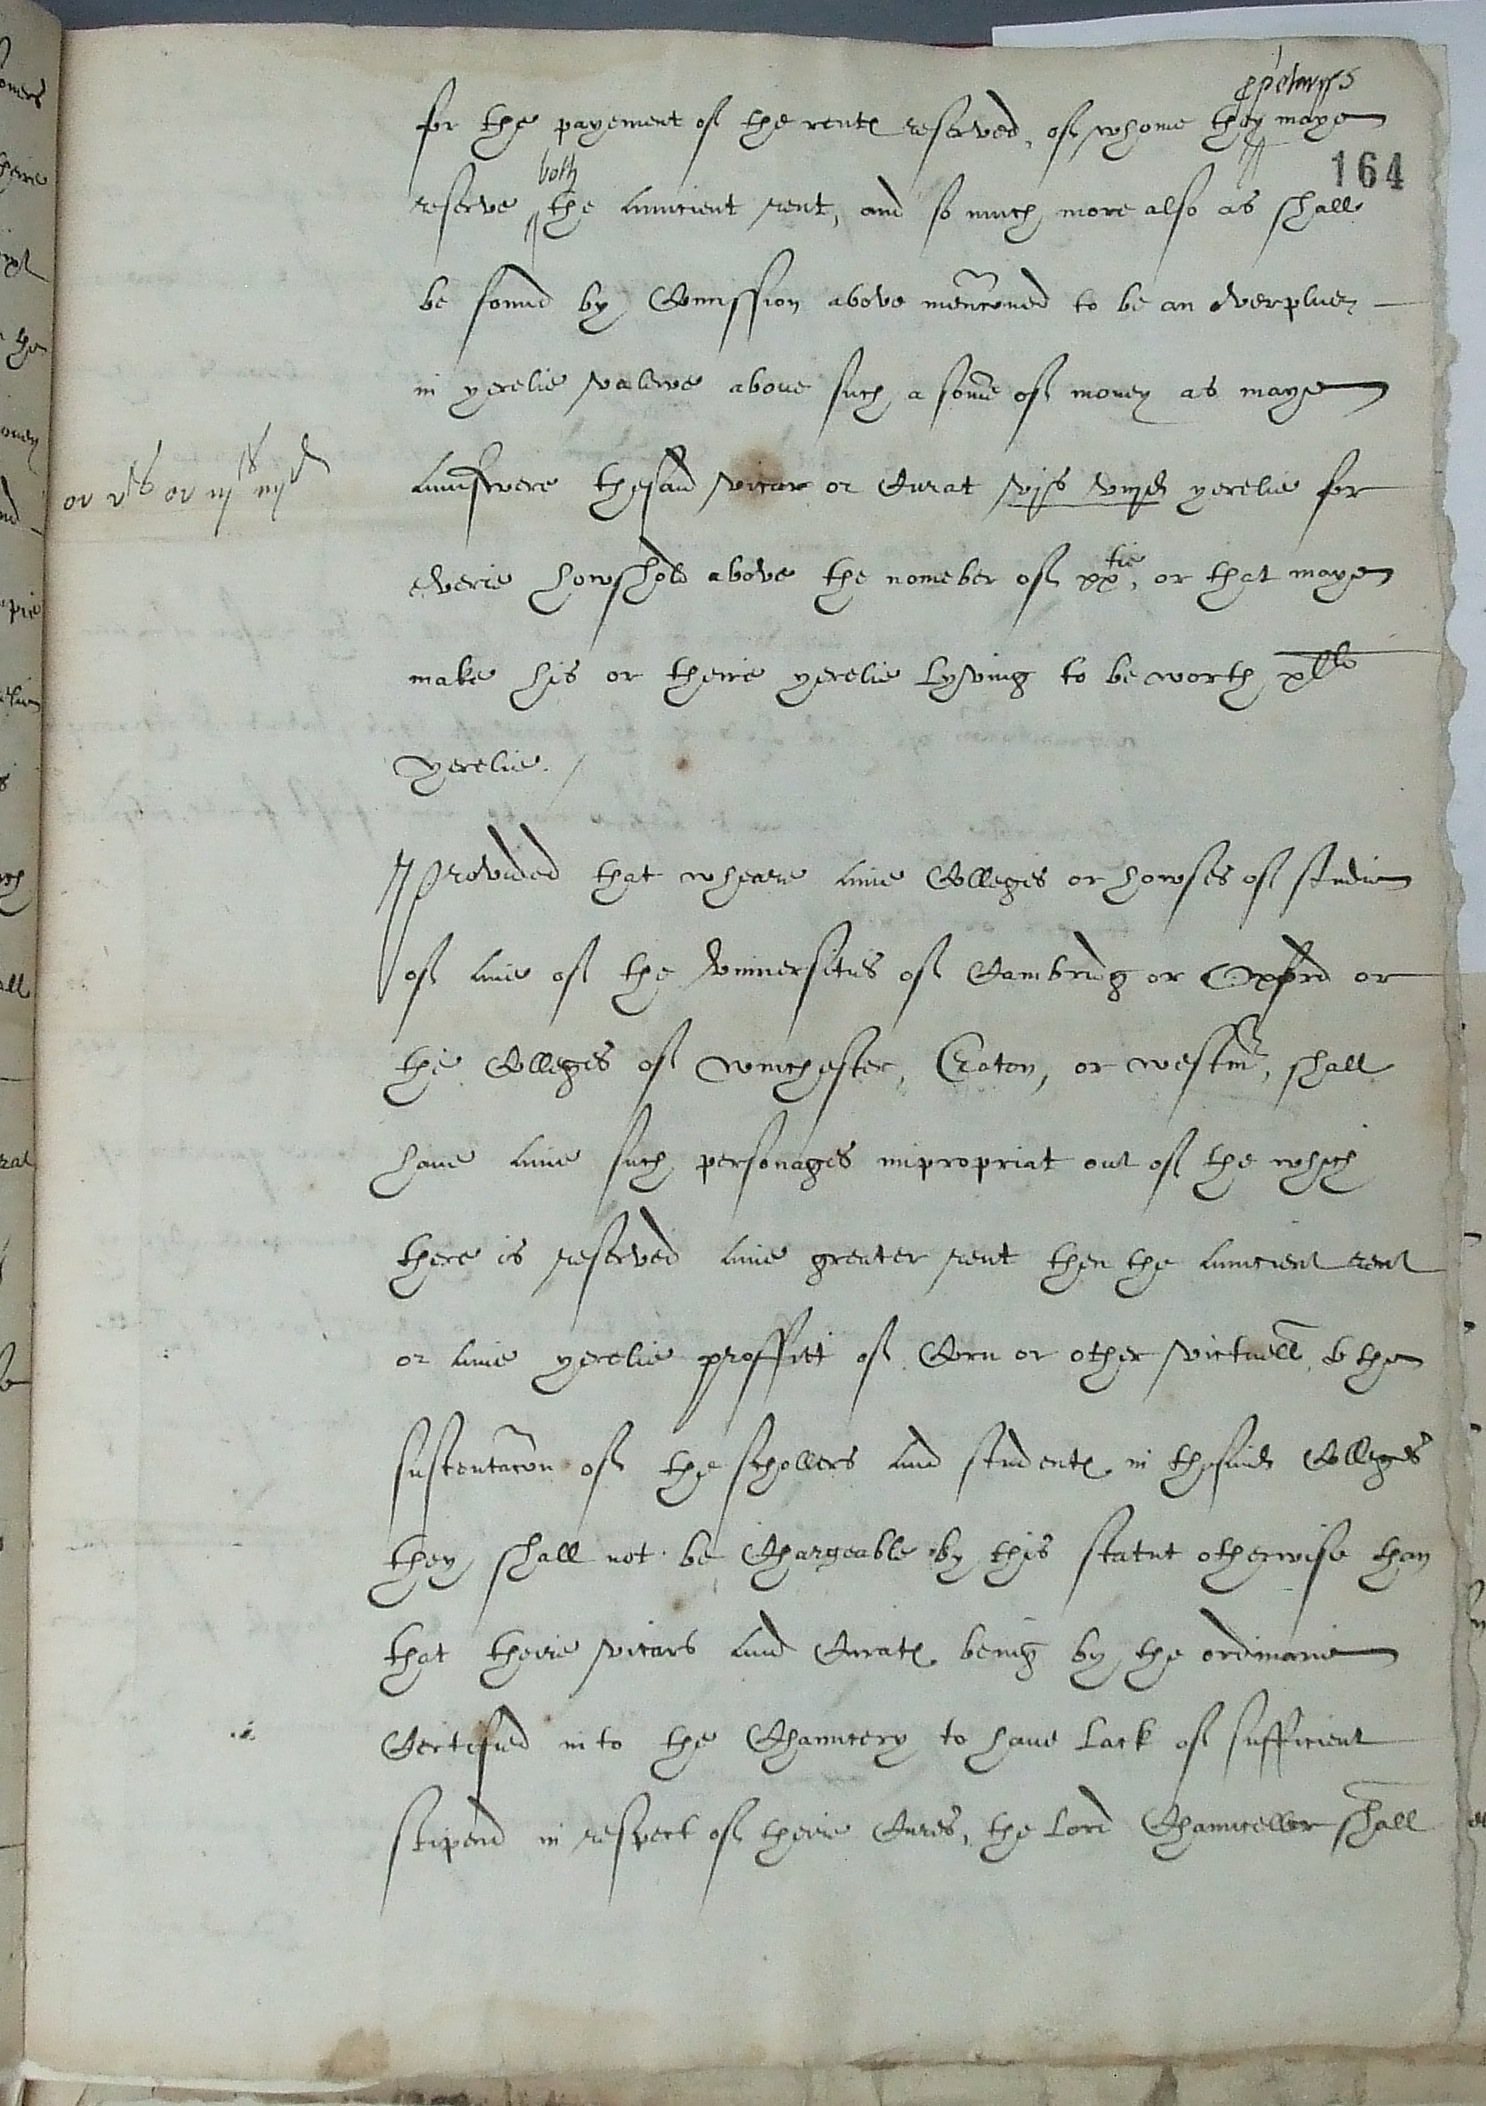 for the payement of the rent reserved, of whome they maye
164
both
reserve the auncient rent, and so much more also as shall
be found by Comission above mencioned to be an overplues
in yerelie valewe above such a some of money as maye
or vs or iijs iiijd
aunswere thesaid vicar or Curat vjs viijd yerelie for
everie howshold above the nomeber of xxtie, or that maye
make his or theire yerelie lyving to be worth
yerelie./
Provided that wheare anie Colleges or howses of studie
of anie of the Vniversities of Cambridg or Oxford or
the Colleges of Winchester, Eaton, or Westmr, shall
have anie such personages impropriat out of the which
there is reserved anie greater rent then the auncient rent
or anie yerelie proffitt of Corn or other victuell, to the
sustentacon of the schollers and students in thesaid Colleges
they shall not be Chargeable by this statut otherwise than
that theire vicars and Curats being by the ordinarie
Certified into the Chauncery to have lack of sufficient
stipend in respect of theire Cures, the Lord Chauncellor shall